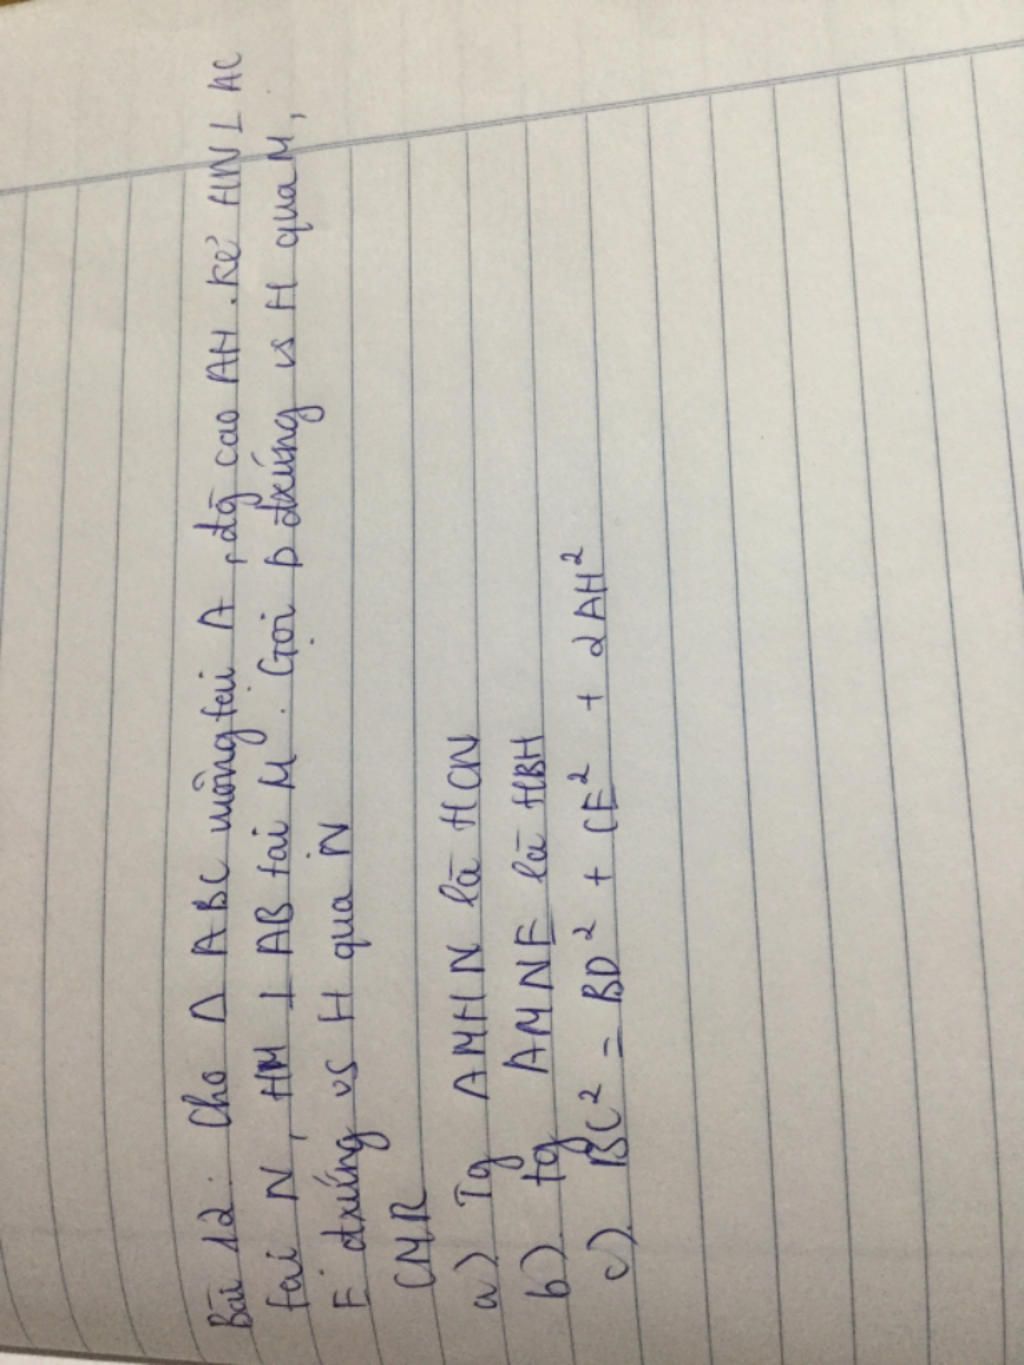 Bài 12: Cho Δ ABC vuông tại A, đg cao AH. kẻ HN ⊥ AC
tại N, HM ⊥ AB tại M. Gọi D đxứng vs H qua M,
E đxứng vs H qua N
CMR
a) Tg AMHN là HCN
b) tg AMNE là HBH
c) BC² = BD² + CE² + 2AH²